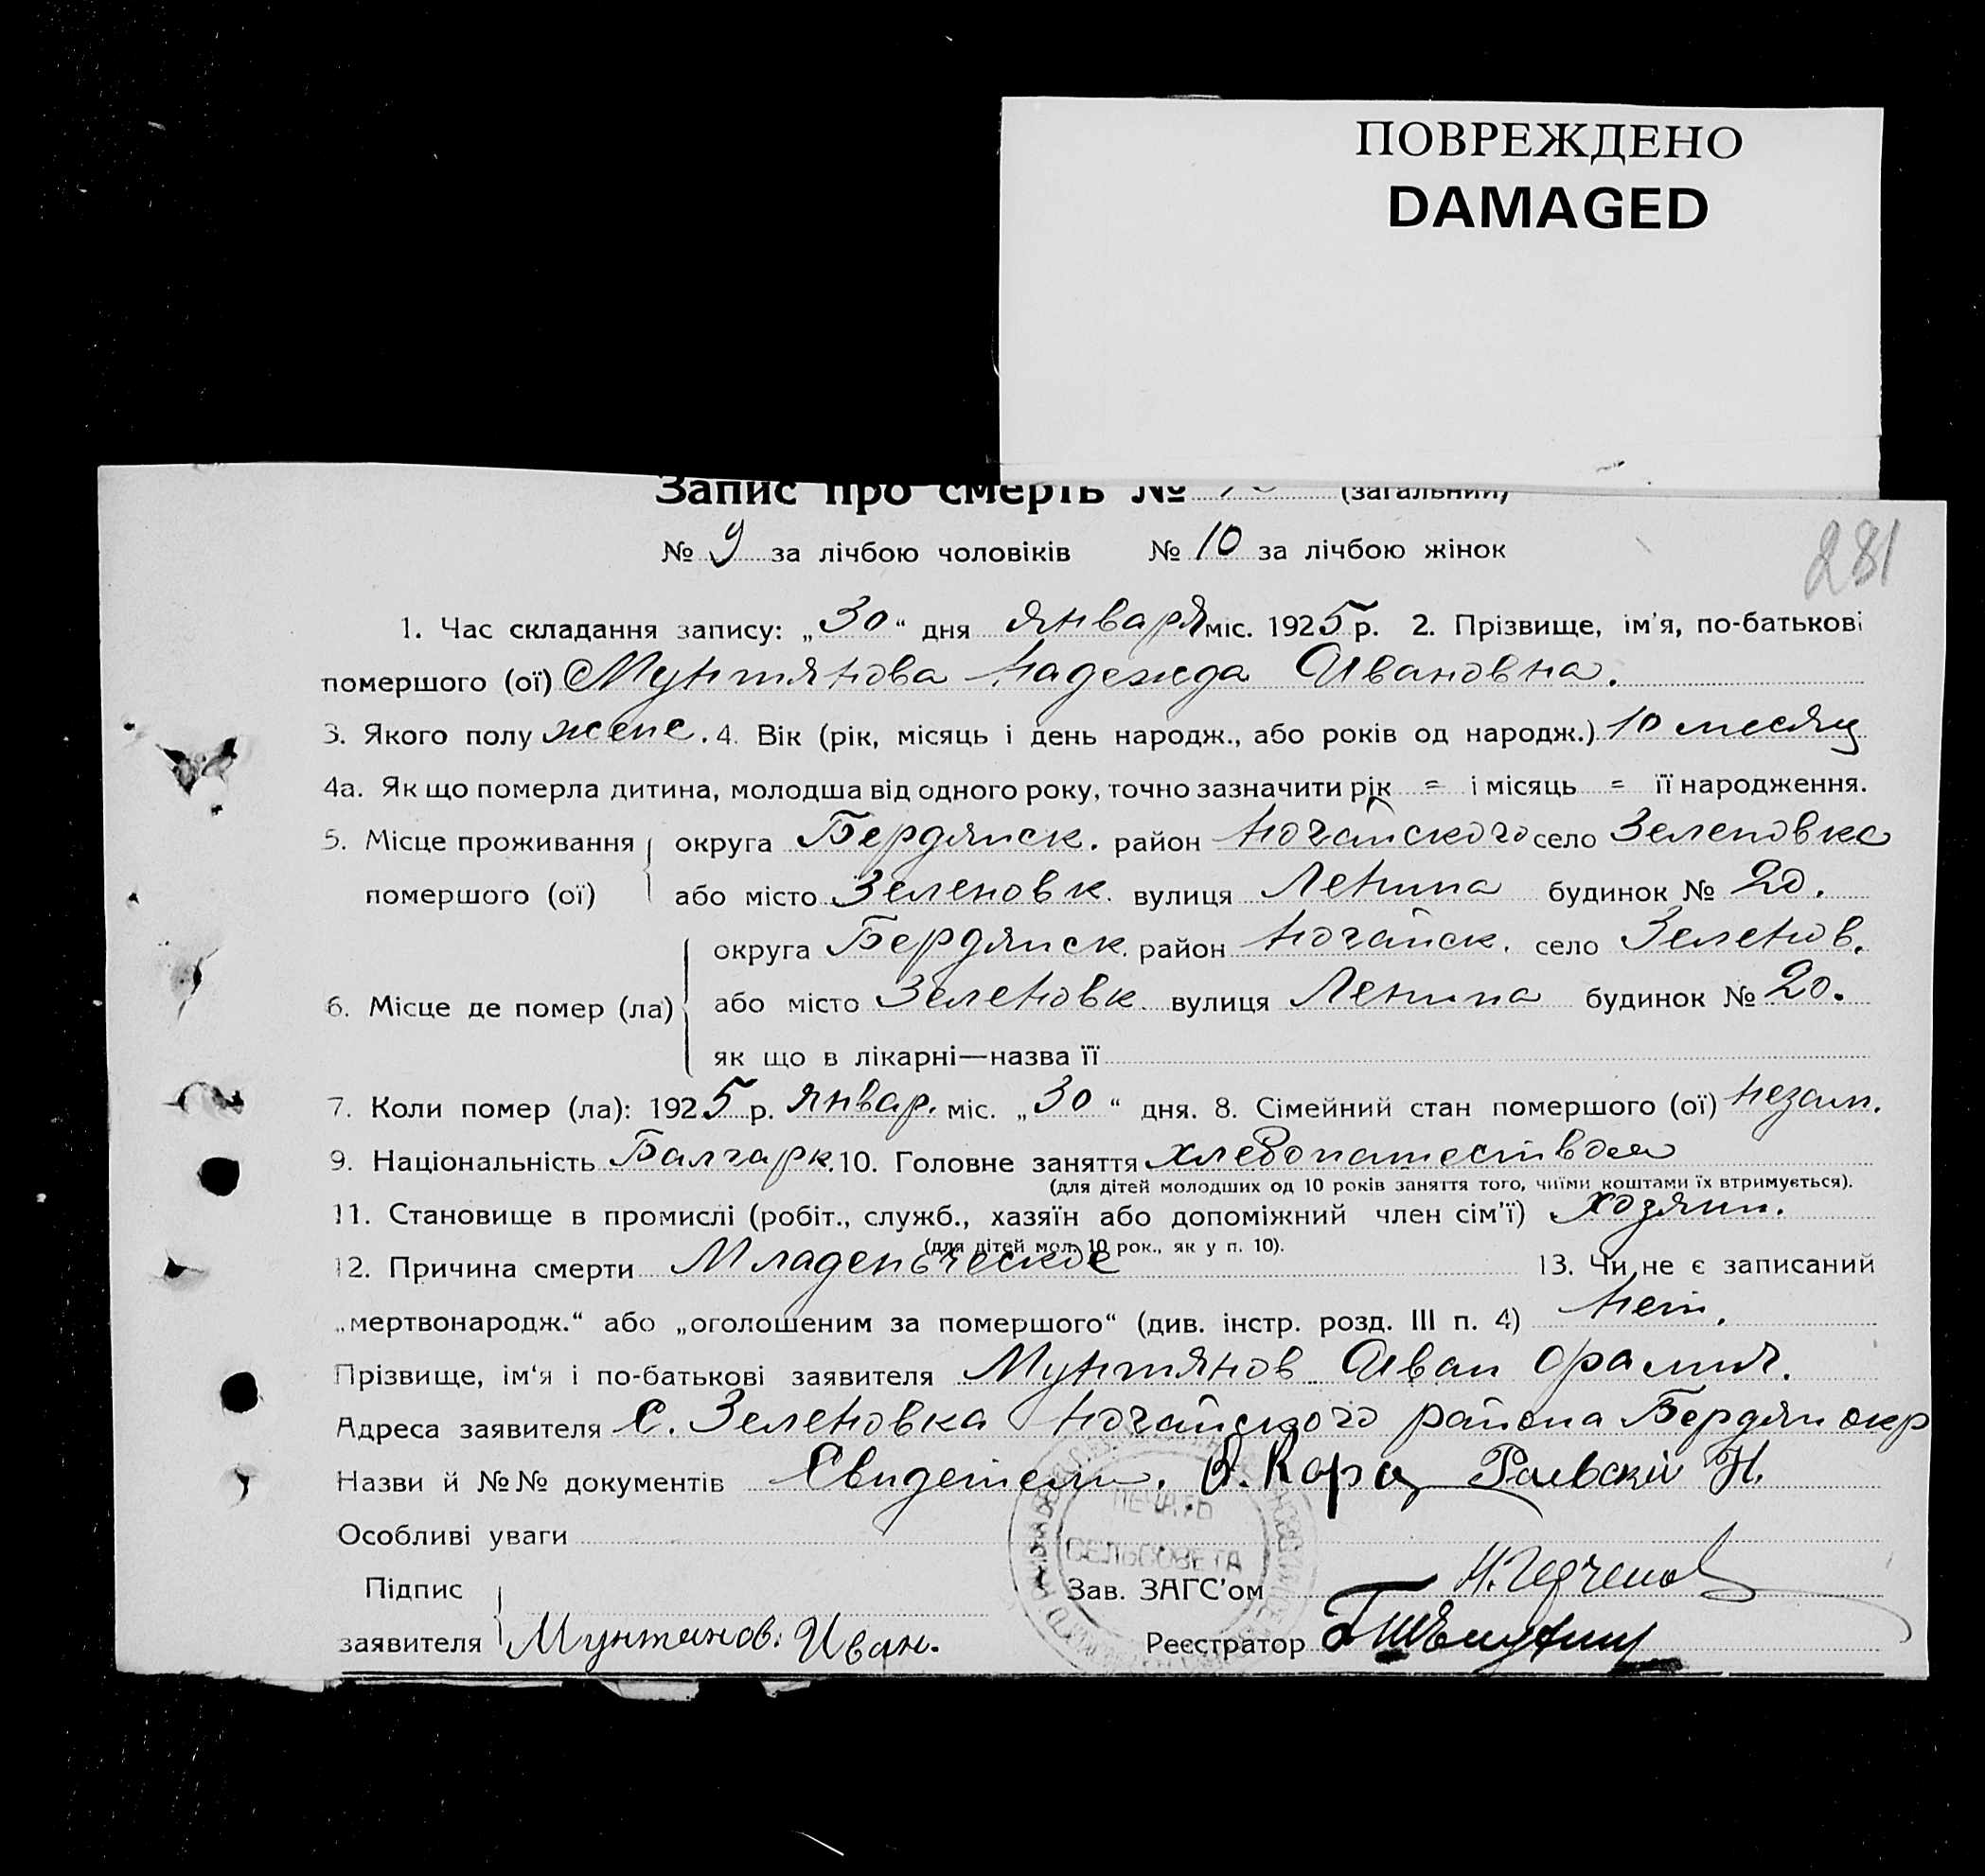 ПОВРЕЖДЕНО
DAMAGED
Запис про смерть № (загальний)
281
№ 9 за лічбою чоловіків № 10 за лічбою жінок
1. Час складання запису: „30“ дня января міс. 1925 р. 2. Прізвище, ім'я, по-батькові
помершого (ої) Мунтянова Надежда Ивановна.
3. Якого полу женс. 4. Вік (рік, місяць і день народж., або років од народж.) 10 месяц
4а. Як що померла дитина, молодша від одного року, точно зазначити рік = і місяць = її народження.
5. Місце проживання округа Бердянск. район Ногайского село Зеленовка
помершого (ої) або місто Зеленовк. вулиця Ленина будинок № 20.
округа Бердянск. район Ногайск. село Зеленов.
6. Місце де помер (ла) або місто Зеленовк. вулиця Ленина будинок № 20.
як що в лікарні—назва її
7. Коли помер (ла): 1925 р. Январ. міс. „30“ дня. 8. Сімейний стан помершого (ої) незам.
9. Національність Балгарк. 10. Головне заняття хлебопашество
(для дітей молодших од 10 років заняття того, чиїми коштами їх втримується).
11. Становище в промислі (робіт., служб., хазяїн або допоміжний член сім'ї) Хозяин.
(для дітей мол. 10 рок., як у п. 10).
12. Причина смерти Младенческое 13. Чи не є записаний
„мертвонародж.“ або „оголошеним за помершого“ (див. інстр. розд. III п. 4) Нет.
Прізвище, ім'я і по-батькові заявителя Мунтянов Иван
Адреса заявителя с. Зеленовка Ногайского района Бердян окр
Назви й №№ документів Свидетели. Раевский Н.
Особливі уваги
ПЕЧАТЬ
СЕЛЬСОВЕТА
Підпис Зав. ЗАГС'ом
заявителя Мунтянов. Иван. Реєстратор